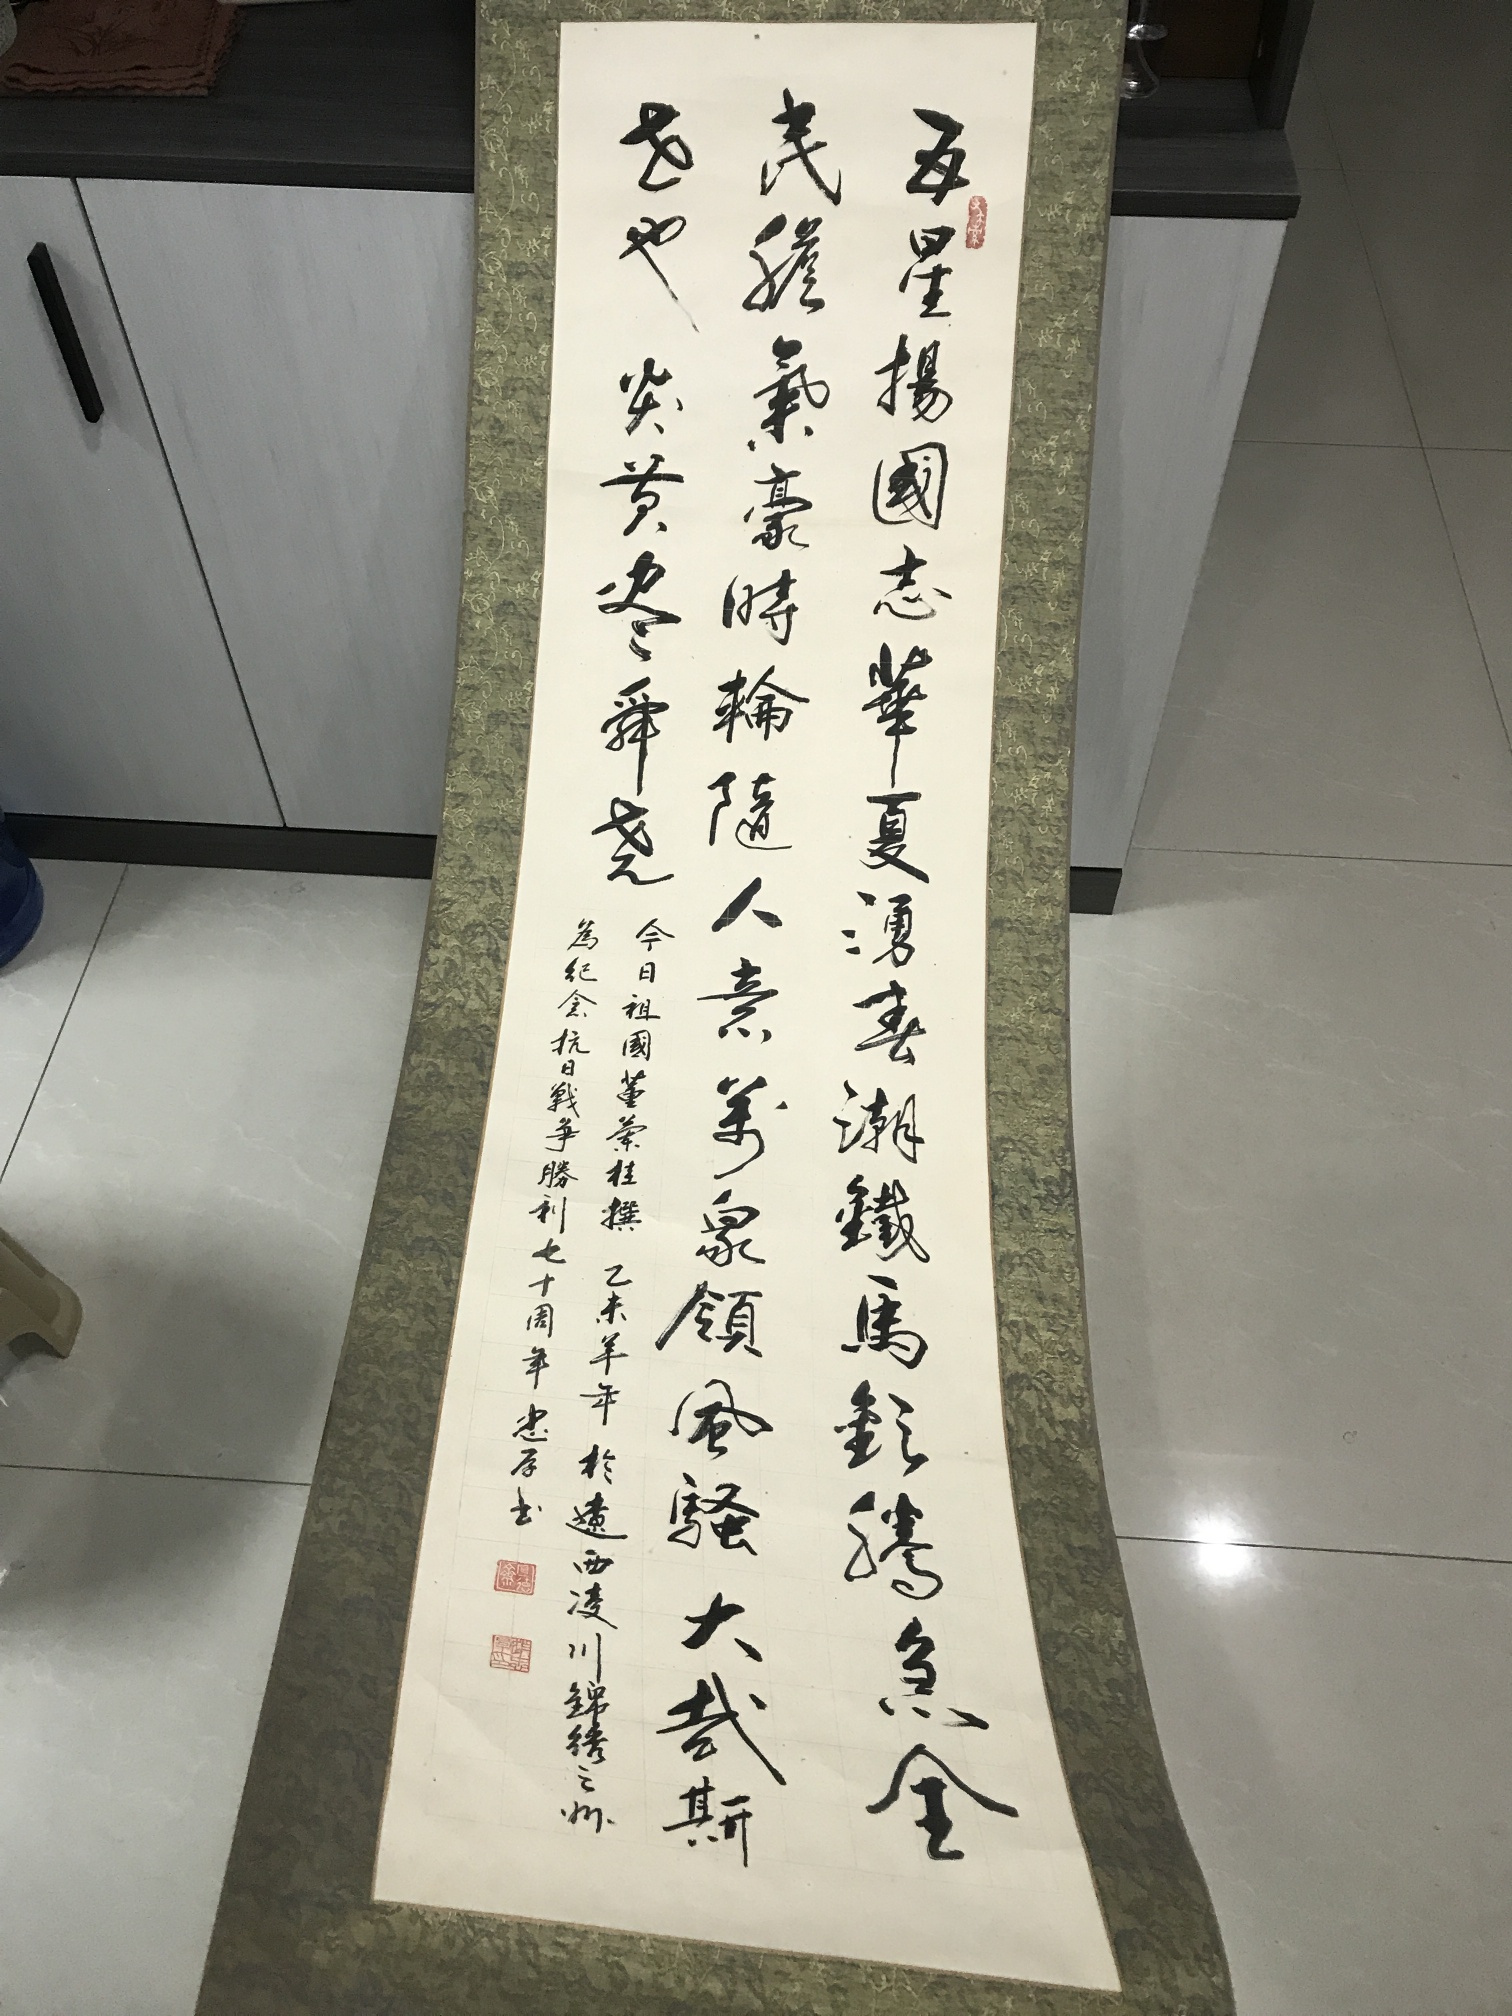 五星揚國志華夏湧春潮鐵馬彩騰急全
民膽氣豪時輪隨人意萬象領風騷大哉斯
世也炎黃尽舜堯
今日祖國董蘭桂撰 乙未羊年 於遼西凌川錦绣之州
為紀念抗日戰爭勝利七十周年 忠厚书